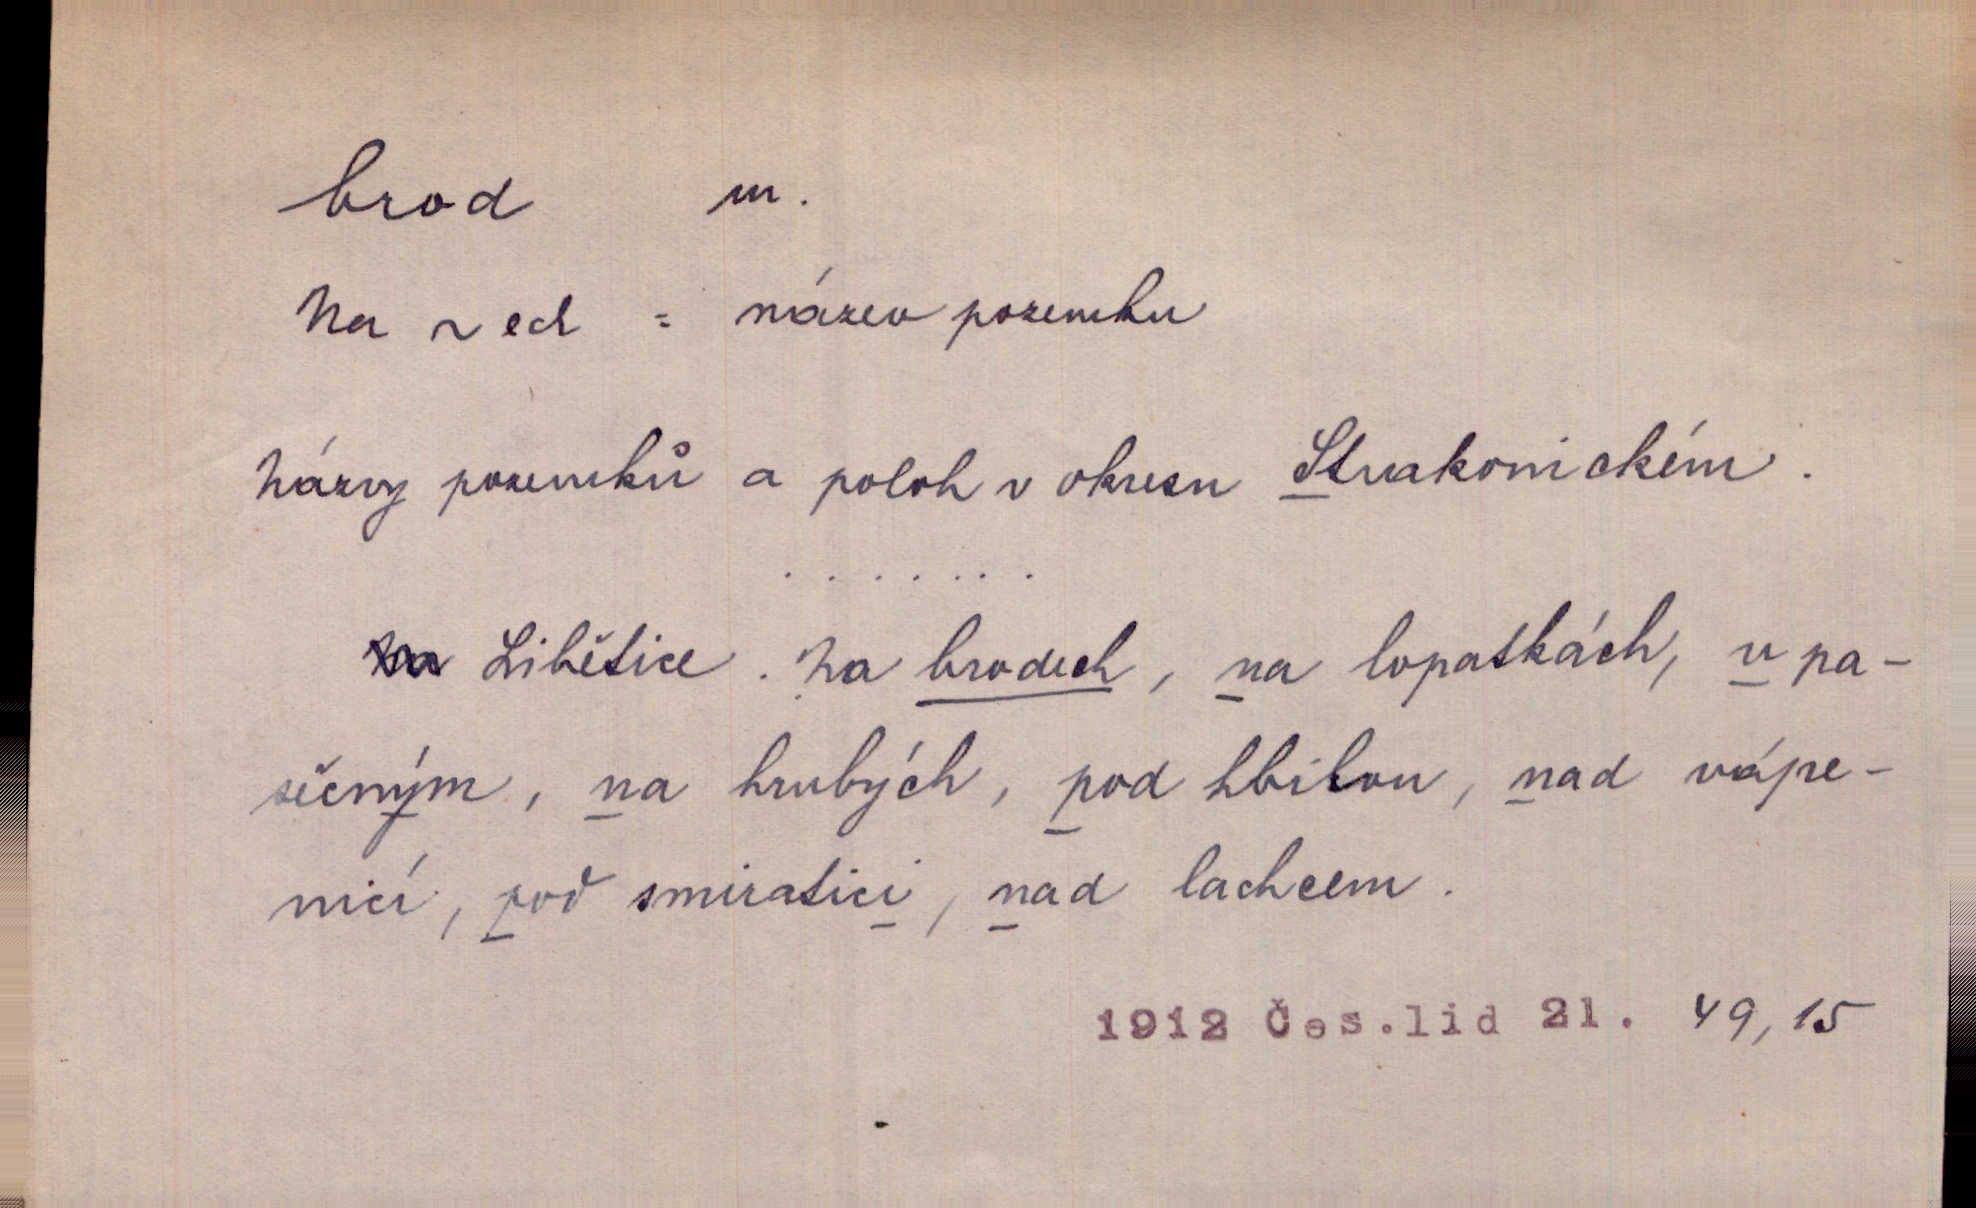 brod m.
Na ~ ech = název pozemku
Názvy pozemků a poloh v okresu Strakonickém.
.......
Libětice. Na brodech, na lopatkách, u pa-
sečným, na hrubých, pod hbilou, nad vápe-
nicí, poď smiratici, nad lachcem.
1912 Čes.lid 21. 49,15